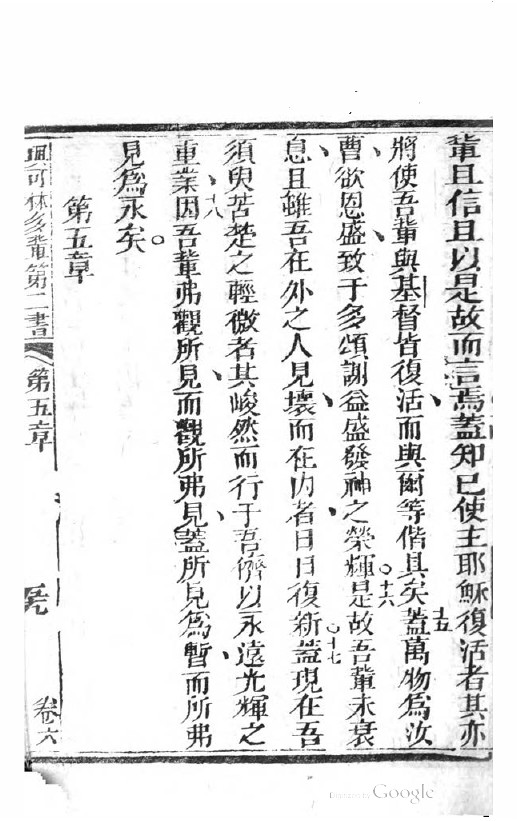 輩且信且以是故而言焉蓋知已使主耶穌復活者其亦
將使吾輩與基督皆復活而與爾等偕具矣十五蓋萬物為汝
曹欲恩盛致于多頌謝益盛發神之榮輝十六是故吾輩未衰
息且雖吾在外之人見壞而在內者日日復新十七蓋現在吾
須臾苦楚之輕微者其峻然而行于吾儕以永遠光輝之
重業十八因吾輩弗觀所見而觀所弗見蓋所見為暫而所弗
見為永矣
第五章
可林多輩第二書 第五章 卷六
Google